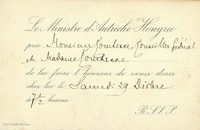 Le Ministre d'Autriche Hongrie
prie Monsieur Comtesse, Conseiller fédéral
et Madame Comtesse
de lui faire l'honneur de venir dîner
chez lui le Samedi 29
à 7 heures
R.S.V.P.